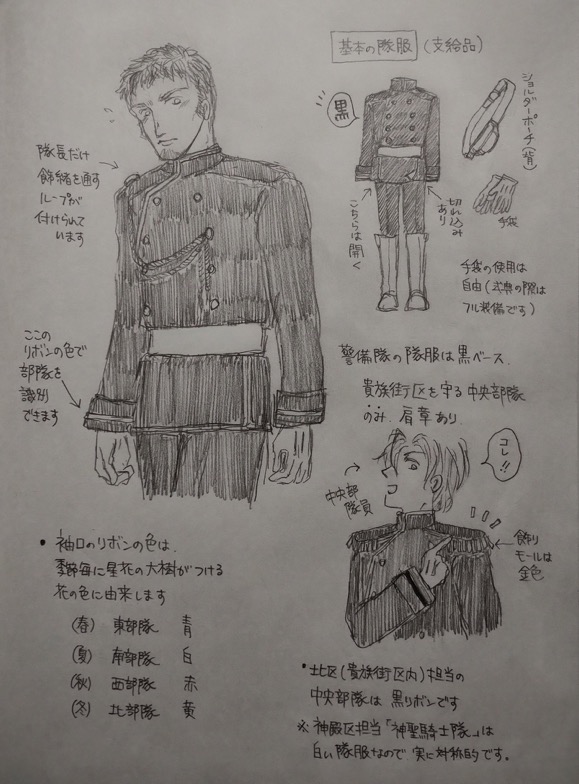 基本の隊服 (支給品)
黒
ショルダーポーチ(背)
手袋
こちらは開く
切れ込み
あり
手袋の使用は
自由(式典の際は
フル装備です)
隊長だけ
飾緒を通す
ループが
付けられて
います
ここの
リボンの色で
部隊を
識別
できます
警備隊の隊服は黒ベース.
貴族街区を守る中央部隊
のみ、肩章あり
中央部
隊員
コレ!!
飾り
モールは
金色
• 袖口のリボンの色は、
季節毎に星花の大樹がつける
花の色に由来します
(春) 東部隊 青
(夏) 南部隊 白
(秋) 西部隊 赤
(冬) 北部隊 黄
• 北区(貴族街区内)担当の
中央部隊は黒リボンです
※ 神殿区担当「神聖騎士隊」は
白い隊服なので実に対称的です。